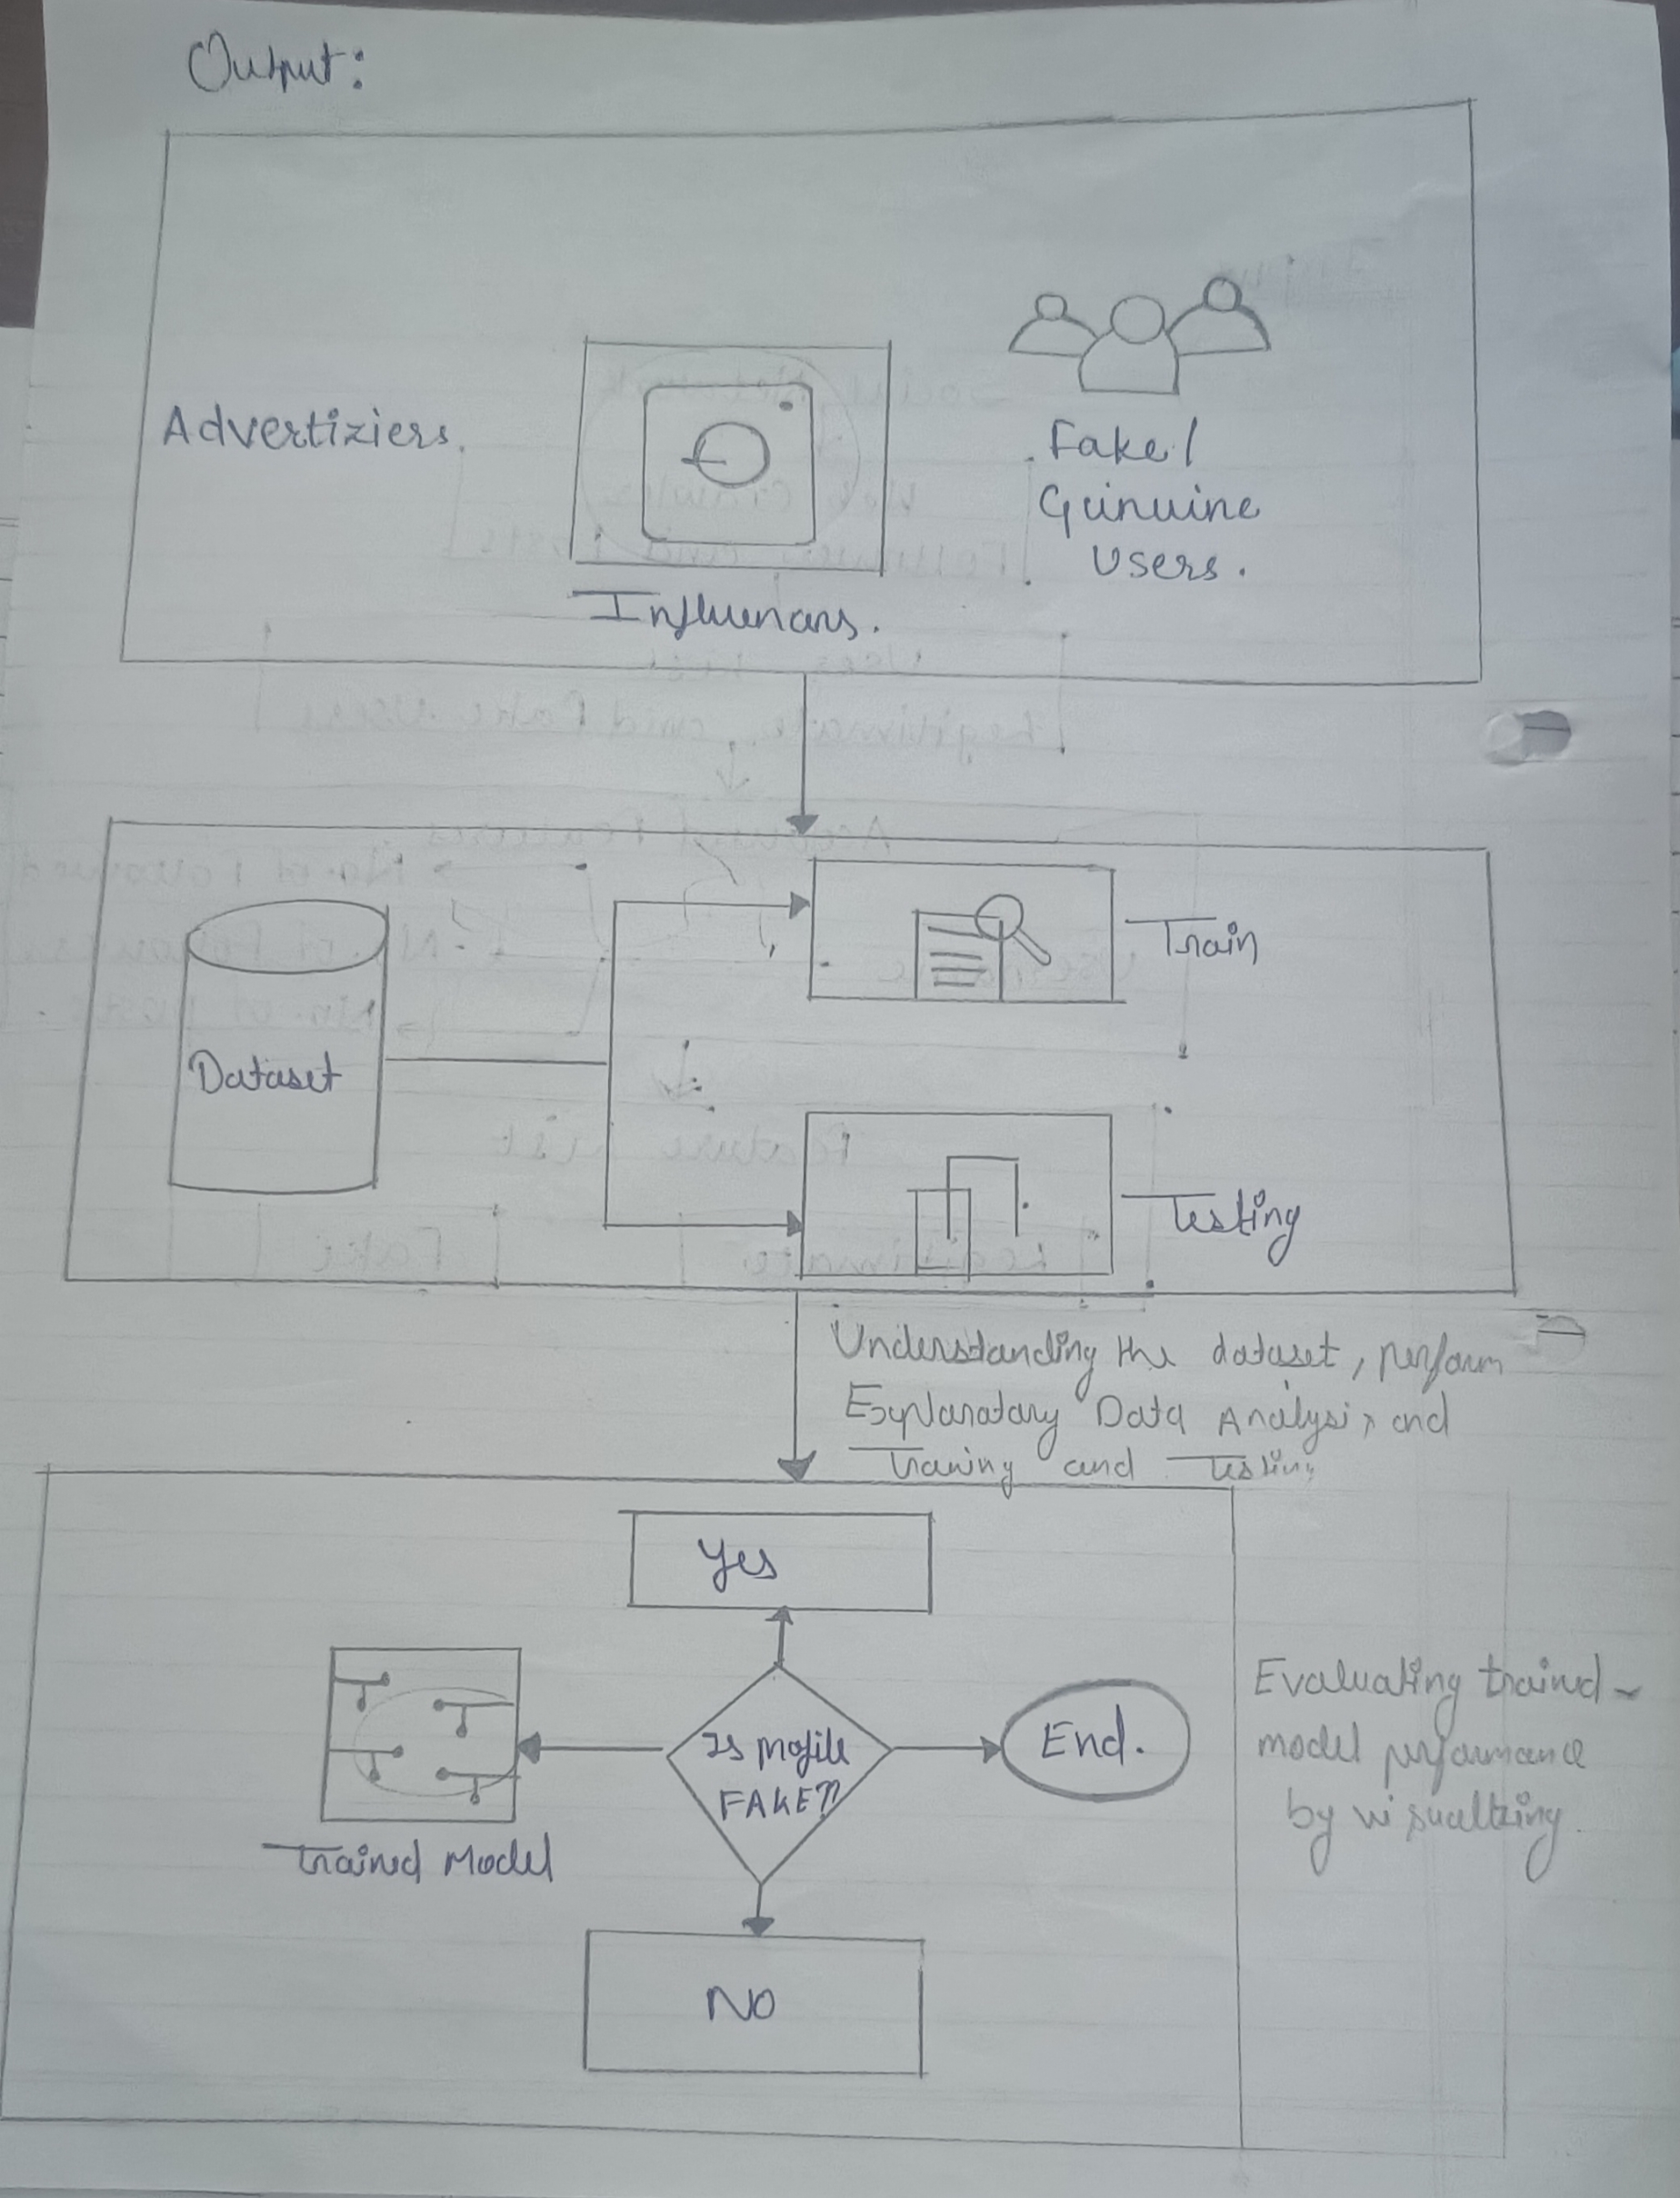 Output:
Advertiziers.
Fake/
Guinuine
Users.
Influenars.
Dataset
Train
Testing
Understanding the dataset, perform
Explanatary Data Analysis and
Training and Testing
Yes
Is profile
FAKE??
End.
Trained Model
NO
Evaluating trained-
model performance
by visualizing